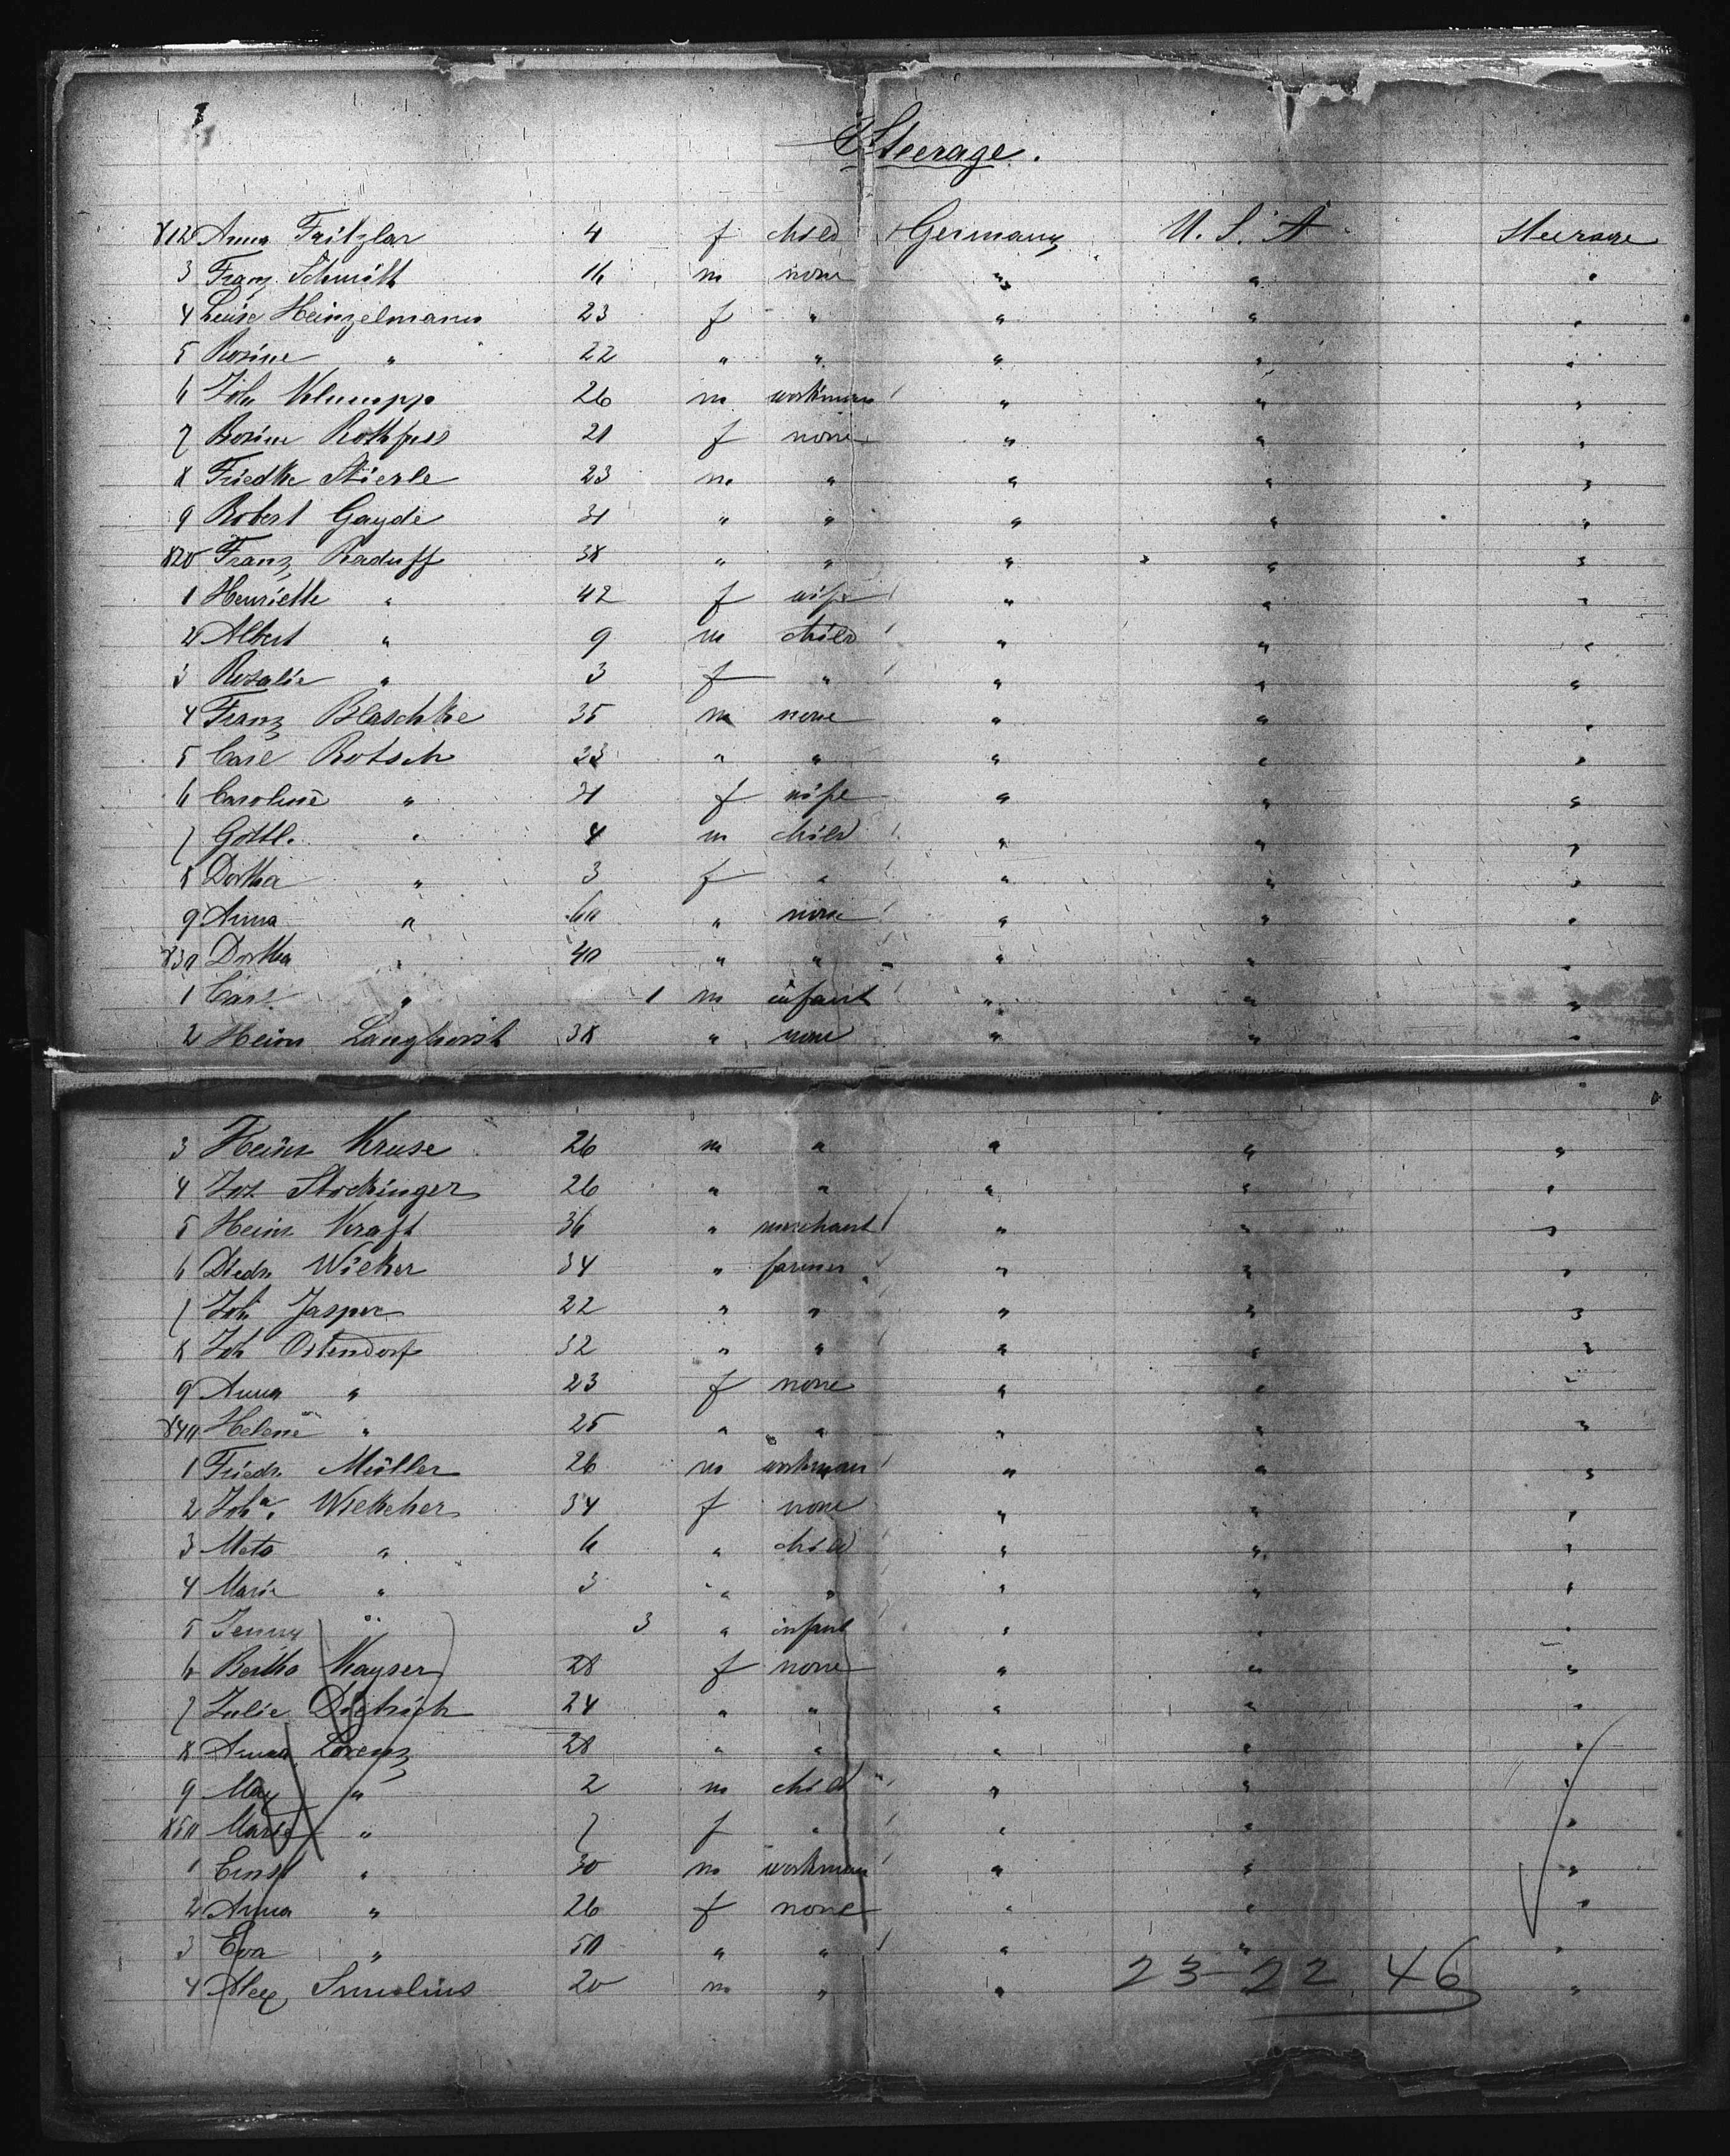 Steerage.
812 Anna Fritzlar 4 f child Germany U. S. A Steerage
3 Franz Schmitt 16 m none " " "
4 Luise Heinzelmann 23 f " " " "
5 Rosine " 22 " " " " "
6 Joh Klumpp 26 m workman " " "
7 Rosine Rothfuss 21 f none " " "
8 Friedke Stierle 23 m " " " "
9 Robert Gayde 31 " " " " "
820 Franz Raduff 38 " " " " "
1 Henriette " 42 f wife " " "
2 Albert " 9 m child " " "
3 Rosalie " 3 f " " " "
4 Franz Blaschke 35 m none " " "
5 Carl Rotsch 23 " " " " "
6 Caroline " 31 f wife " " "
7 Gottl. " 4 m child " " "
8 Dortha " 3 f " " " "
9 Anna " 60 " none " " "
830 Dortha " 40 " " " " "
1 Carl " 1 m infant " " "
2 Heinr Langhorst 38 " none " " "
3 Heinr Kruse 26 m " " " "
4 Jos Stockinger 26 " " " " "
5 Heinr Kraft 36 " merchant " " "
6 Diedr. Wieker 34 " farmer " " "
7 Joh Jasper 22 " " " " "
8 Joh Ostendorf 32 " " " " "
9 Anna " 23 f none " " "
840 Helene " 25 " " " " "
1 Friedr. Müller 26 m workman " " "
2 Joha. Wiekcher 34 f none " " "
3 Meta " 6 " child " " "
4 Marie " 3 " " " " "
5 Jenny " 3 " infant " " "
6 Bertha Kayser 28 f none " " "
7 Julie Dietrich 24 " " " " "
8 Anna Lorenz 28 " " " " "
9 Max " 2 m child " " "
850 Marie " 7 f " " " "
1 Ernst " 30 m workman " " "
2 Anna " 26 f none " " "
3 Eva " 50 " " " " "
4 Alex 20 m " " "
23 22 46